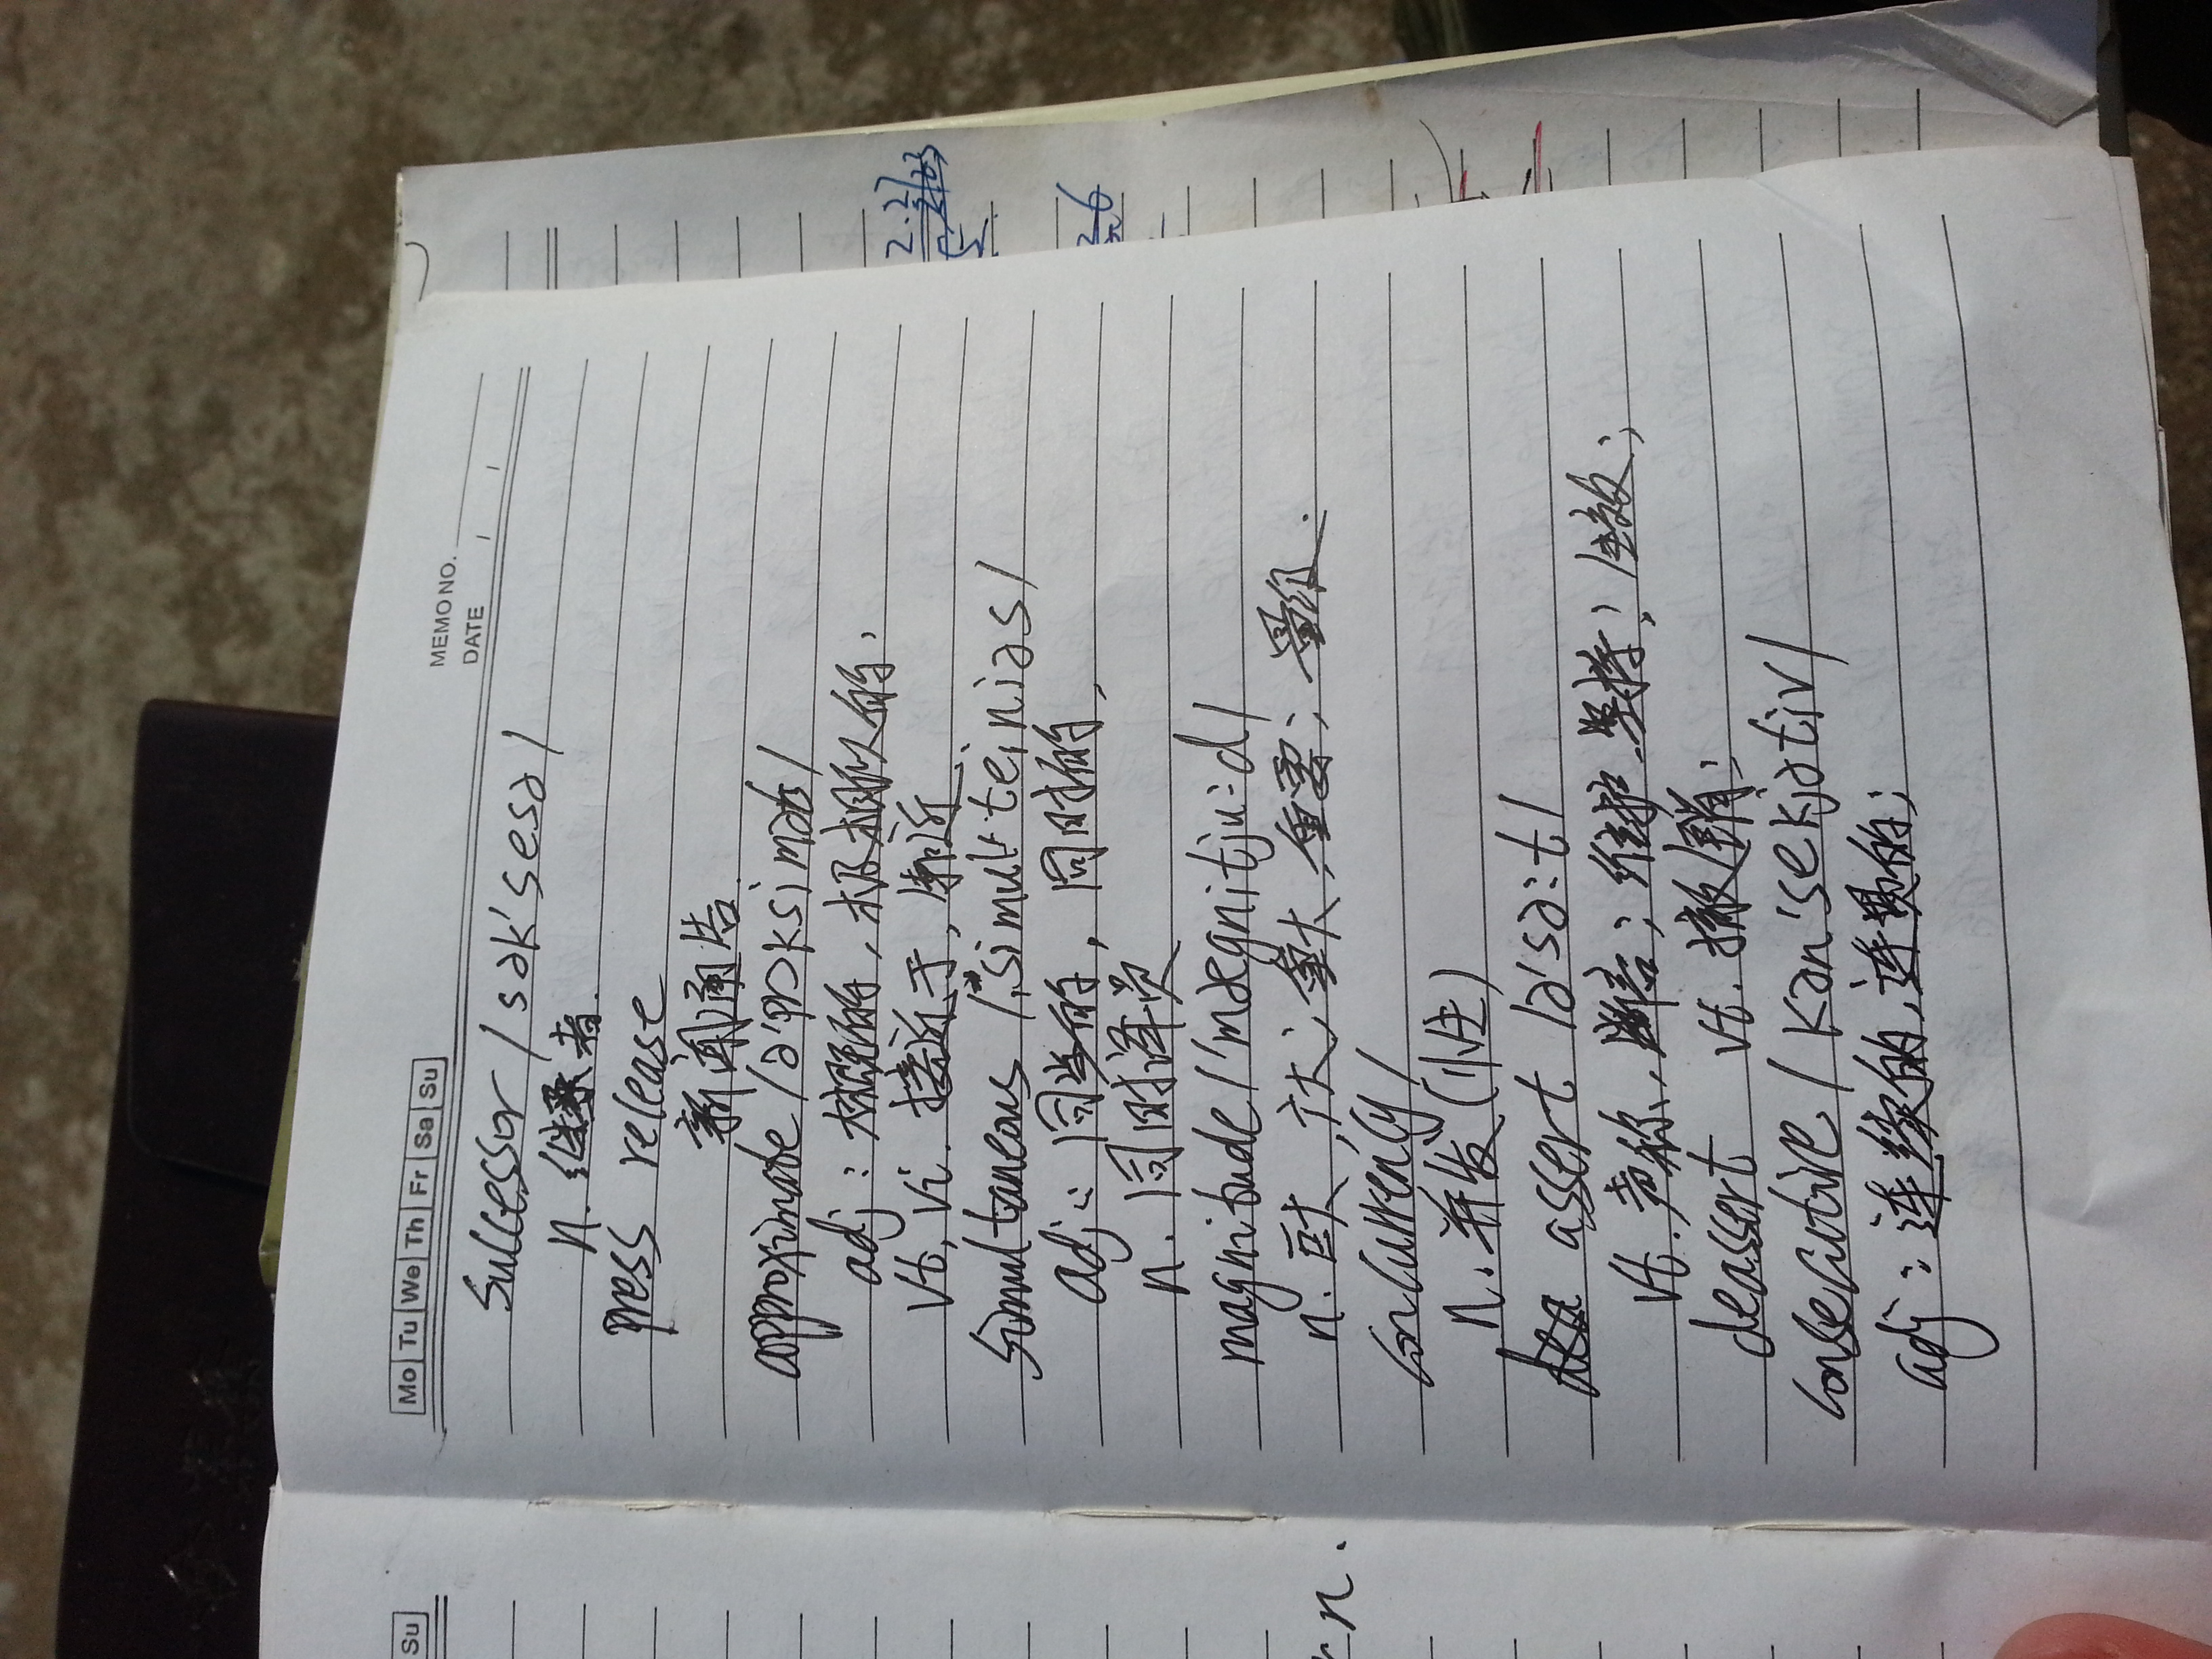 Su
Mo Tu We Th Fr Sa Su
MEMO NO.
DATE / /
successor /sək'sesə/
n. 继承者.
press release
新闻通告.
approximate /ə'prɔksimət/
adj: 大概的, 极相似的,
vt, vi. 接近于, 靠近.
simultaneous /,simul'teiniəs/
adj: 同步的, 同时的,
n. 同时译员
magnitude /'mægnitju:d/
n. 巨大, 广大; 重大, 重要; 量级.
concurrency /
n. 并发(性)
assert /ə'sə:t/
vt. 声称, 断言; 维护、坚持; 生效;
deassert vt. 撤销;
consecutive /kən'sekjətiv/
adj: 连续的, 连贯的;
n.
2.2